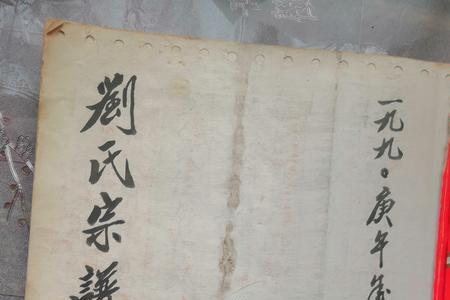 一九九〇庚午岁
劉氏宗譜